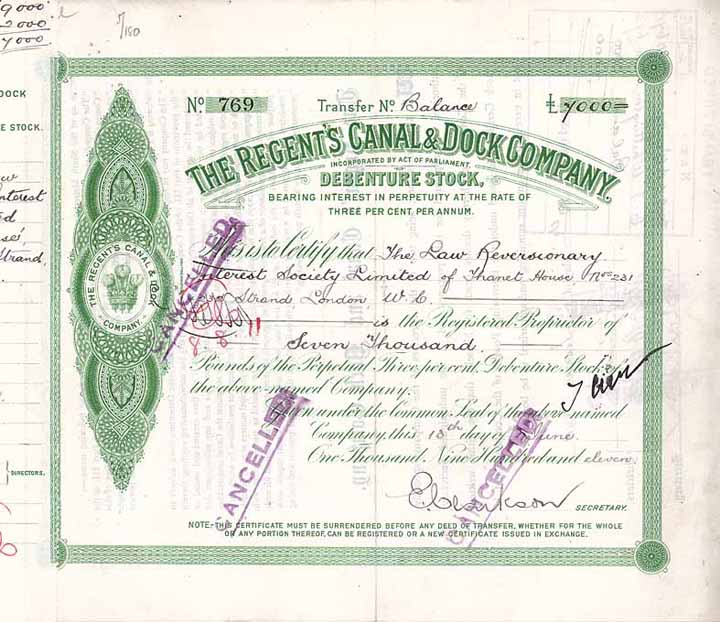 9000
2000
7000
7/180
DOCK
E STOCK.
nterest
Strand.
DIRECTORS.
No. 769 Transfer No. Balance £7000=
THE REGENT'S CANAL & DOCK COMPANY.
INCORPORATED BY ACT OF PARLIAMENT.
DEBENTURE STOCK,
BEARING INTEREST IN PERPETUITY AT THE RATE OF
THREE PER CENT. PER ANNUM.
This is to Certify that The Law Reversionary
Interest Society Limited of Thanet House Nos 231
Strand London W.C.
is the Registered Proprietor of
Seven Thousand
Pounds of the Perpetual Three per cent. Debenture Stock of
the above-named Company.
Given under the Common Seal of the above named
Company, this 13th day of June
One Thousand Nine Hundred and eleven.
SECRETARY.
NOTE:-THIS CERTIFICATE MUST BE SURRENDERED BEFORE ANY DEED OF TRANSFER, WHETHER FOR THE WHOLE
OR ANY PORTION THEREOF, CAN BE REGISTERED OR A NEW CERTIFICATE ISSUED IN EXCHANGE.
THE REGENT'S CANAL & DOCK
COMPANY
CANCELLED
8.8.11
CANCELLED
CANCELLED